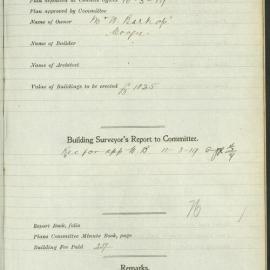 Plan deposited at Council Office 10-3-19
Plan approved by Committee
Name of Owner Mr W.
Coogee
Name of Builder
Name of Architect
Value of Buildings to be erected £1035
Building Surveyor's Report to Committee.
Rec for app 11-3-19
Report Book, folio
Plans Committee Minute Book, page
Building Fee Paid
Remarks.